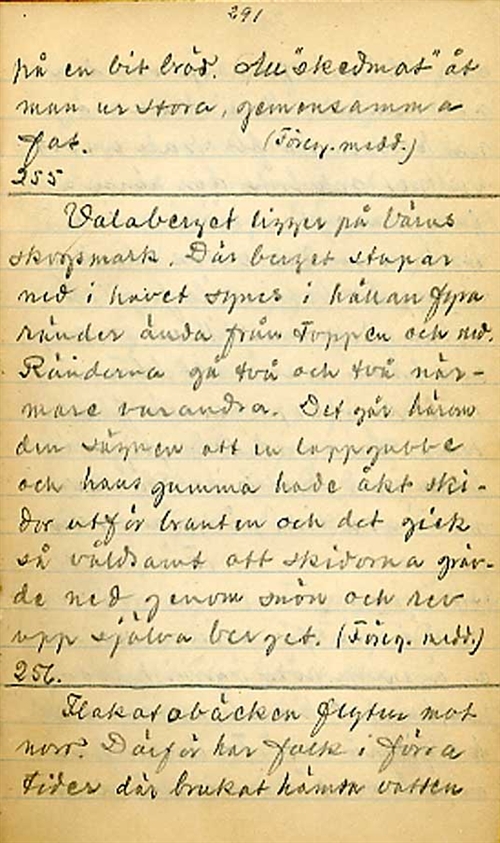 291
på en bit bröd. All "skedmat" åt
man ur stora, gemensamma
fat. (Föreg. medd.)
255
Valaberget ligger på Vårns
skogsmark. Där berget stupar
ned i havet synes i hällan fyra
ränder ända från toppen och ned.
Ränderna gå två och två när-
mare varandra. Det går härom
den sägnen att en lappgubbe
och hans gumma hade åkt ski-
dor utför branten och det gick
så våldsamt att skidorna gräv-
de ned genom snön och rev
upp själva berget. (Föreg. medd.)
256.
Flakasabäcken flyter mot
norr. Därför har folk i förra
tider där brukat hämta vatten